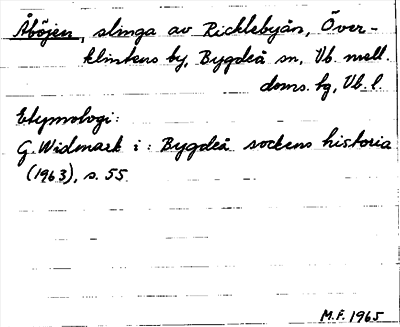 Åböjen, slinga av Ricklebyån, Över-
klintens by, Bygdeå sn, Vb. mell.
doms. hg, Vb. l.
Etymologi:
G. Widmark i: Bygdeå sockens historia
(1963), s. 55.
M.F. 1965